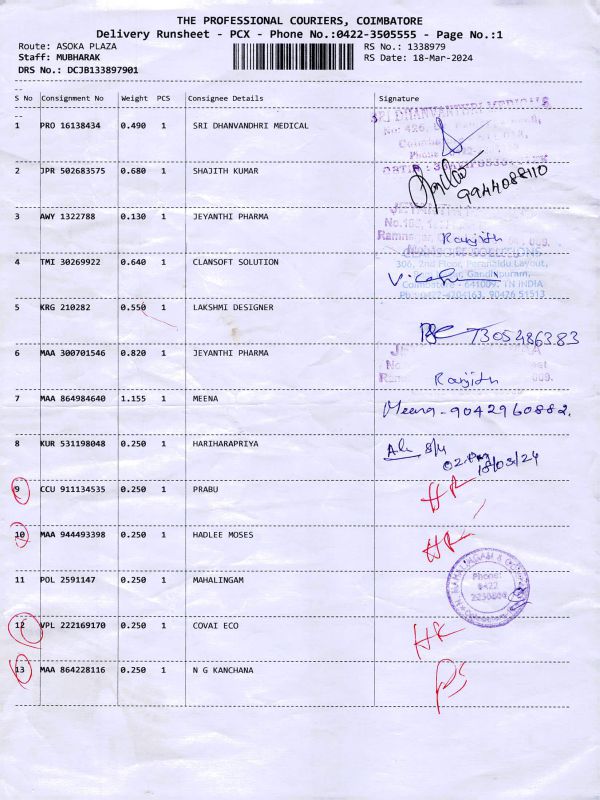 THE PROFESSIONAL COURIERS, COIMBATORE
Delivery Runsheet - PCX - Phone No.:0422-3505555 - Page No.:1
Route: ASOKA PLAZA RS No.: 1338979
Staff: MUBHARAK RS Date: 18-Mar-2024
DRS No.: DCJB133897901
S No Consignment No Weight PCS Consignee Details Signature
1 PRO 16138434 0.490 1 SRI DHANVANDHRI MEDICAL
SRI DHANVANTHRI MEDICALS
No: 426,
2 JPR 502683575 0.680 1 SHAJITH KUMAR
9944088110
3 AWY 1322788 0.130 1 JEYANTHI PHARMA
Ranjith
4 TMI 30269922 0.640 1 CLANSOFT SOLUTION
306, 2nd Floor, Perumaidu Layout,
Gandhipuram,
Coimbatore - 641009. TN INDIA
Ph : 0422-4204163, 90426 51513
5 KRG 210282 0.550 1 LAKSHMI DESIGNER
7305486383
6 MAA 300701546 0.820 1 JEYANTHI PHARMA
Ranjith
7 MAA 864984640 1.155 1 MEENA
Meena - 9042960882.
8 KUR 531198048 0.250 1 HARIHARAPRIYA
18/03/24
9 CCU 911134535 0.250 1 PRABU
10 MAA 944493398 0.250 1 HADLEE MOSES
11 POL 2591147 0.250 1 MAHALINGAM
Phone:
0422
12 VPL 222169170 0.250 1 COVAI ECO
13 MAA 864228116 0.250 1 N G KANCHANA